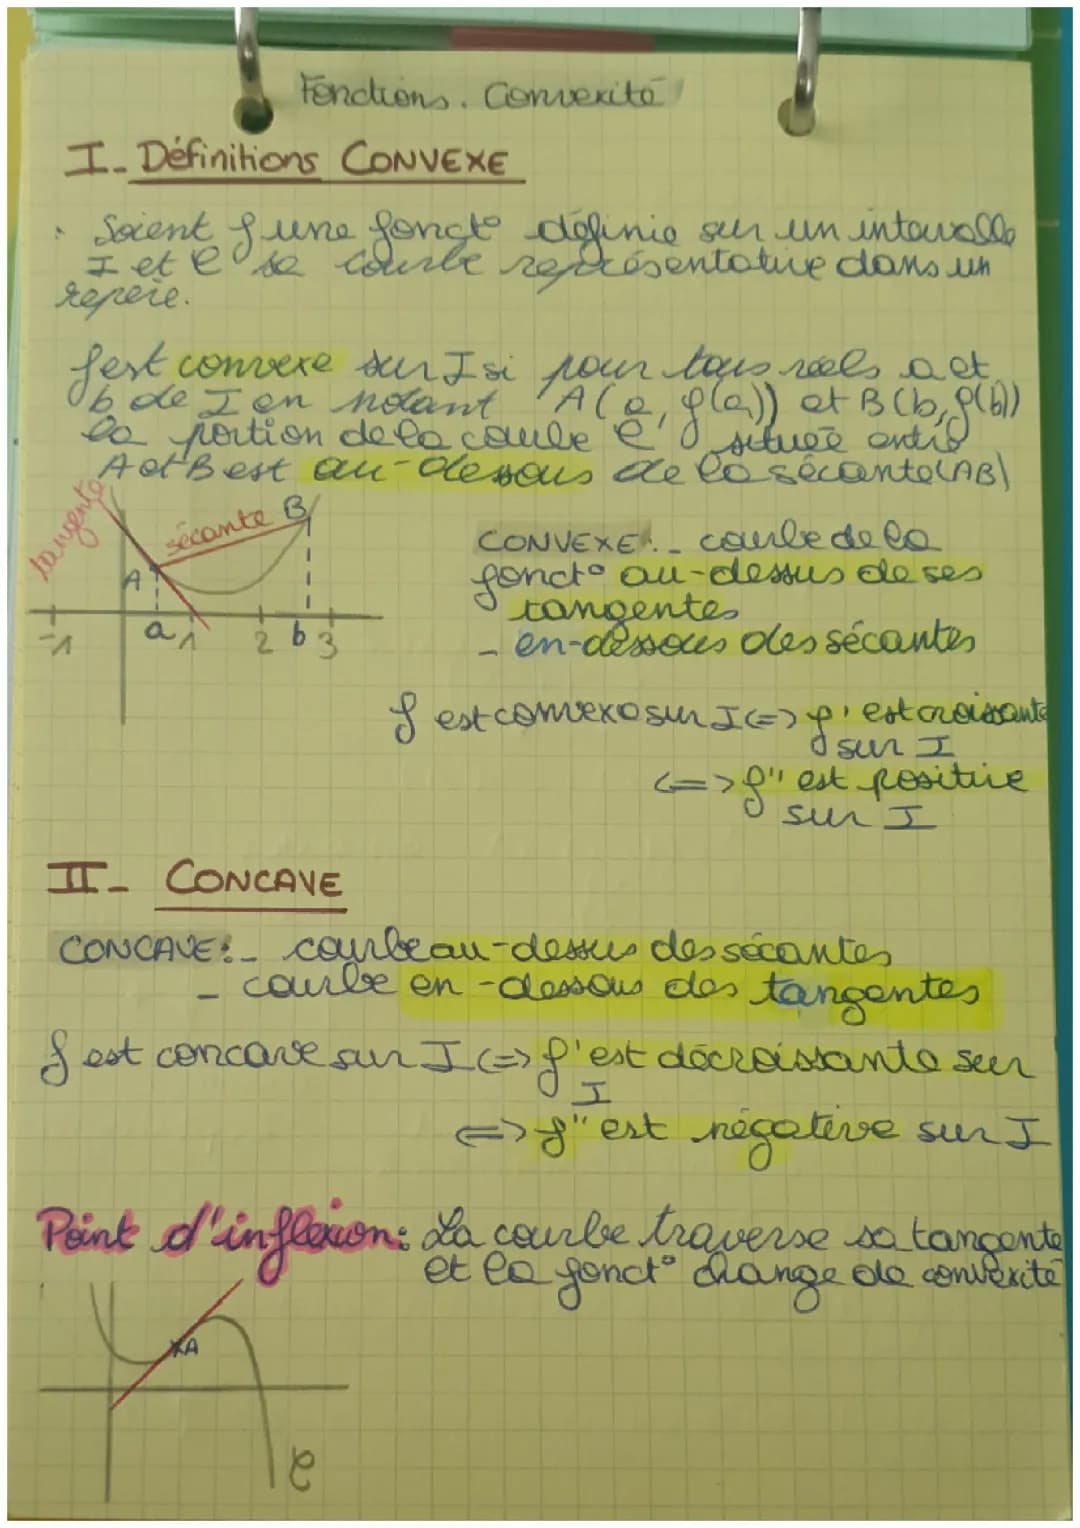 Fonctions. Convexité
I- Définitions CONVEXE
• Soient f une fonct° définie sur un intervalle
I et C sa courbe représentative dans un
repère.
f est convexe sur I si pour tous réels a et
b de I en notant A(a, f(a)) et B(b, f(b))
la portion de la courbe C située entre
A et B est au-dessous de la sécante (AB)
tangente
sécante
B
A
-1 a 1 2 b 3
CONVEXE:- courbe de la
fonct° au-dessus de ses
tangentes
- en-dessous des sécantes
f est convexe sur I <=> f' est croissante
sur I
<=> f'' est positive
sur I
II- CONCAVE
CONCAVE:- courbe au-dessus des sécantes
- courbe en-dessous des tangentes
f est concave sur I <=> f' est décroissante sur
I
<=> f'' est négative sur I
Point d'inflexion: La courbe traverse sa tangente
et la fonct° change de convexité
A
C